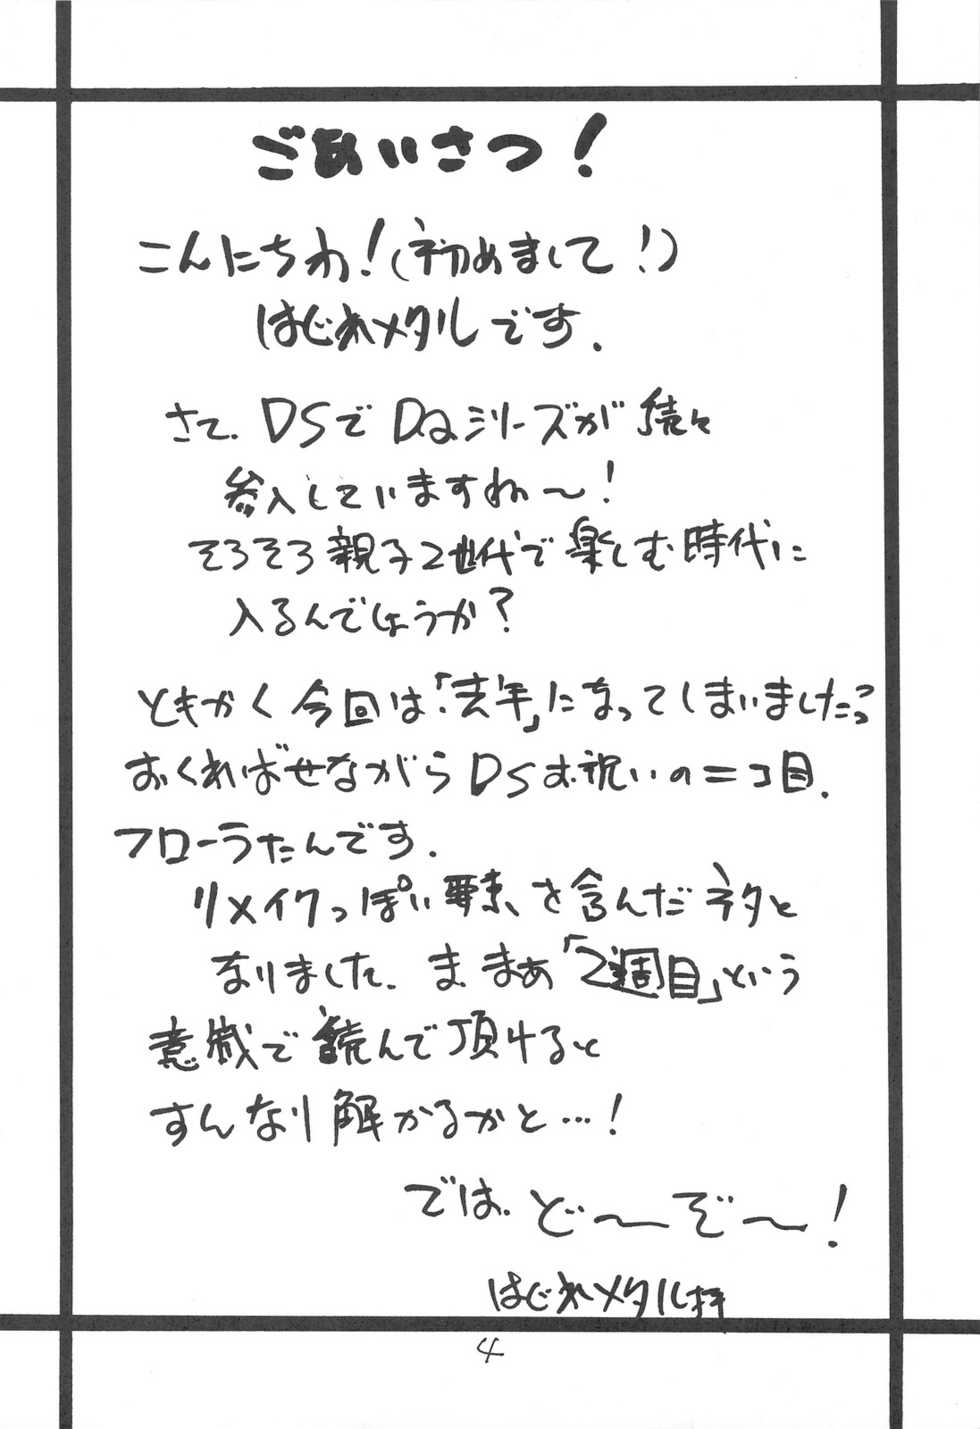 ごあいさつ！
こんにちわ！（初めまして！）
はじれメタルです．
さて．DSでDQシリーズが続々
参入していますね〜！
そろそろ親子2世代で楽しむ時代に
入るんでしょうか？
ともかく今回は「去年」になってしまいましたっ？
おくればせながらDSお祝いのニコ目．
フローラたんです．
リメイクっぽい要素、を含んだネタと
なりました．ま．まあ「2週目」という
意識で読んで頂けると
すんなり解かるかと…！
では．ど〜ぞ〜！
はじれメタル拝
4